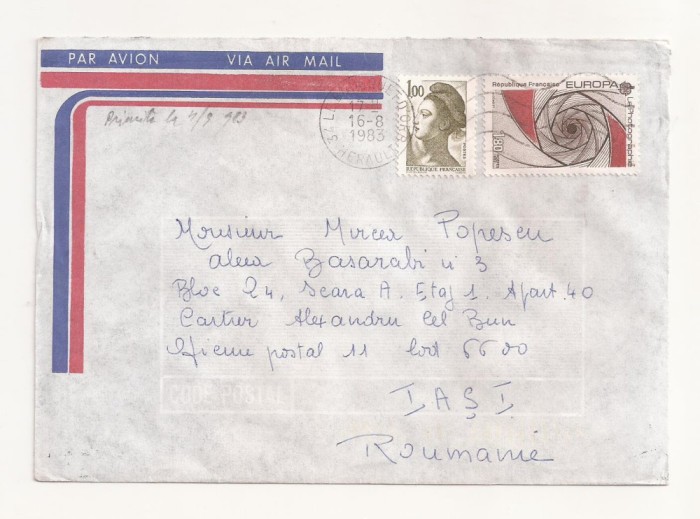 PAR AVION VIA AIR MAIL
17-
16-8
1983
HERAULT
1.00
REPUBLIQUE FRANÇAISE
République Française EUROPA
La Photographie
1.80
le 4/9 983
Monsieur Mircea Popescu
aleea Basarabi n 3
Bloc 24, Scara A. Etaj 1. Apart. 40
Cartier Alexandru Cel Bun
Oficiu postal 11 Cod 6600
CODE POSTAL
IAȘI
Roumanie